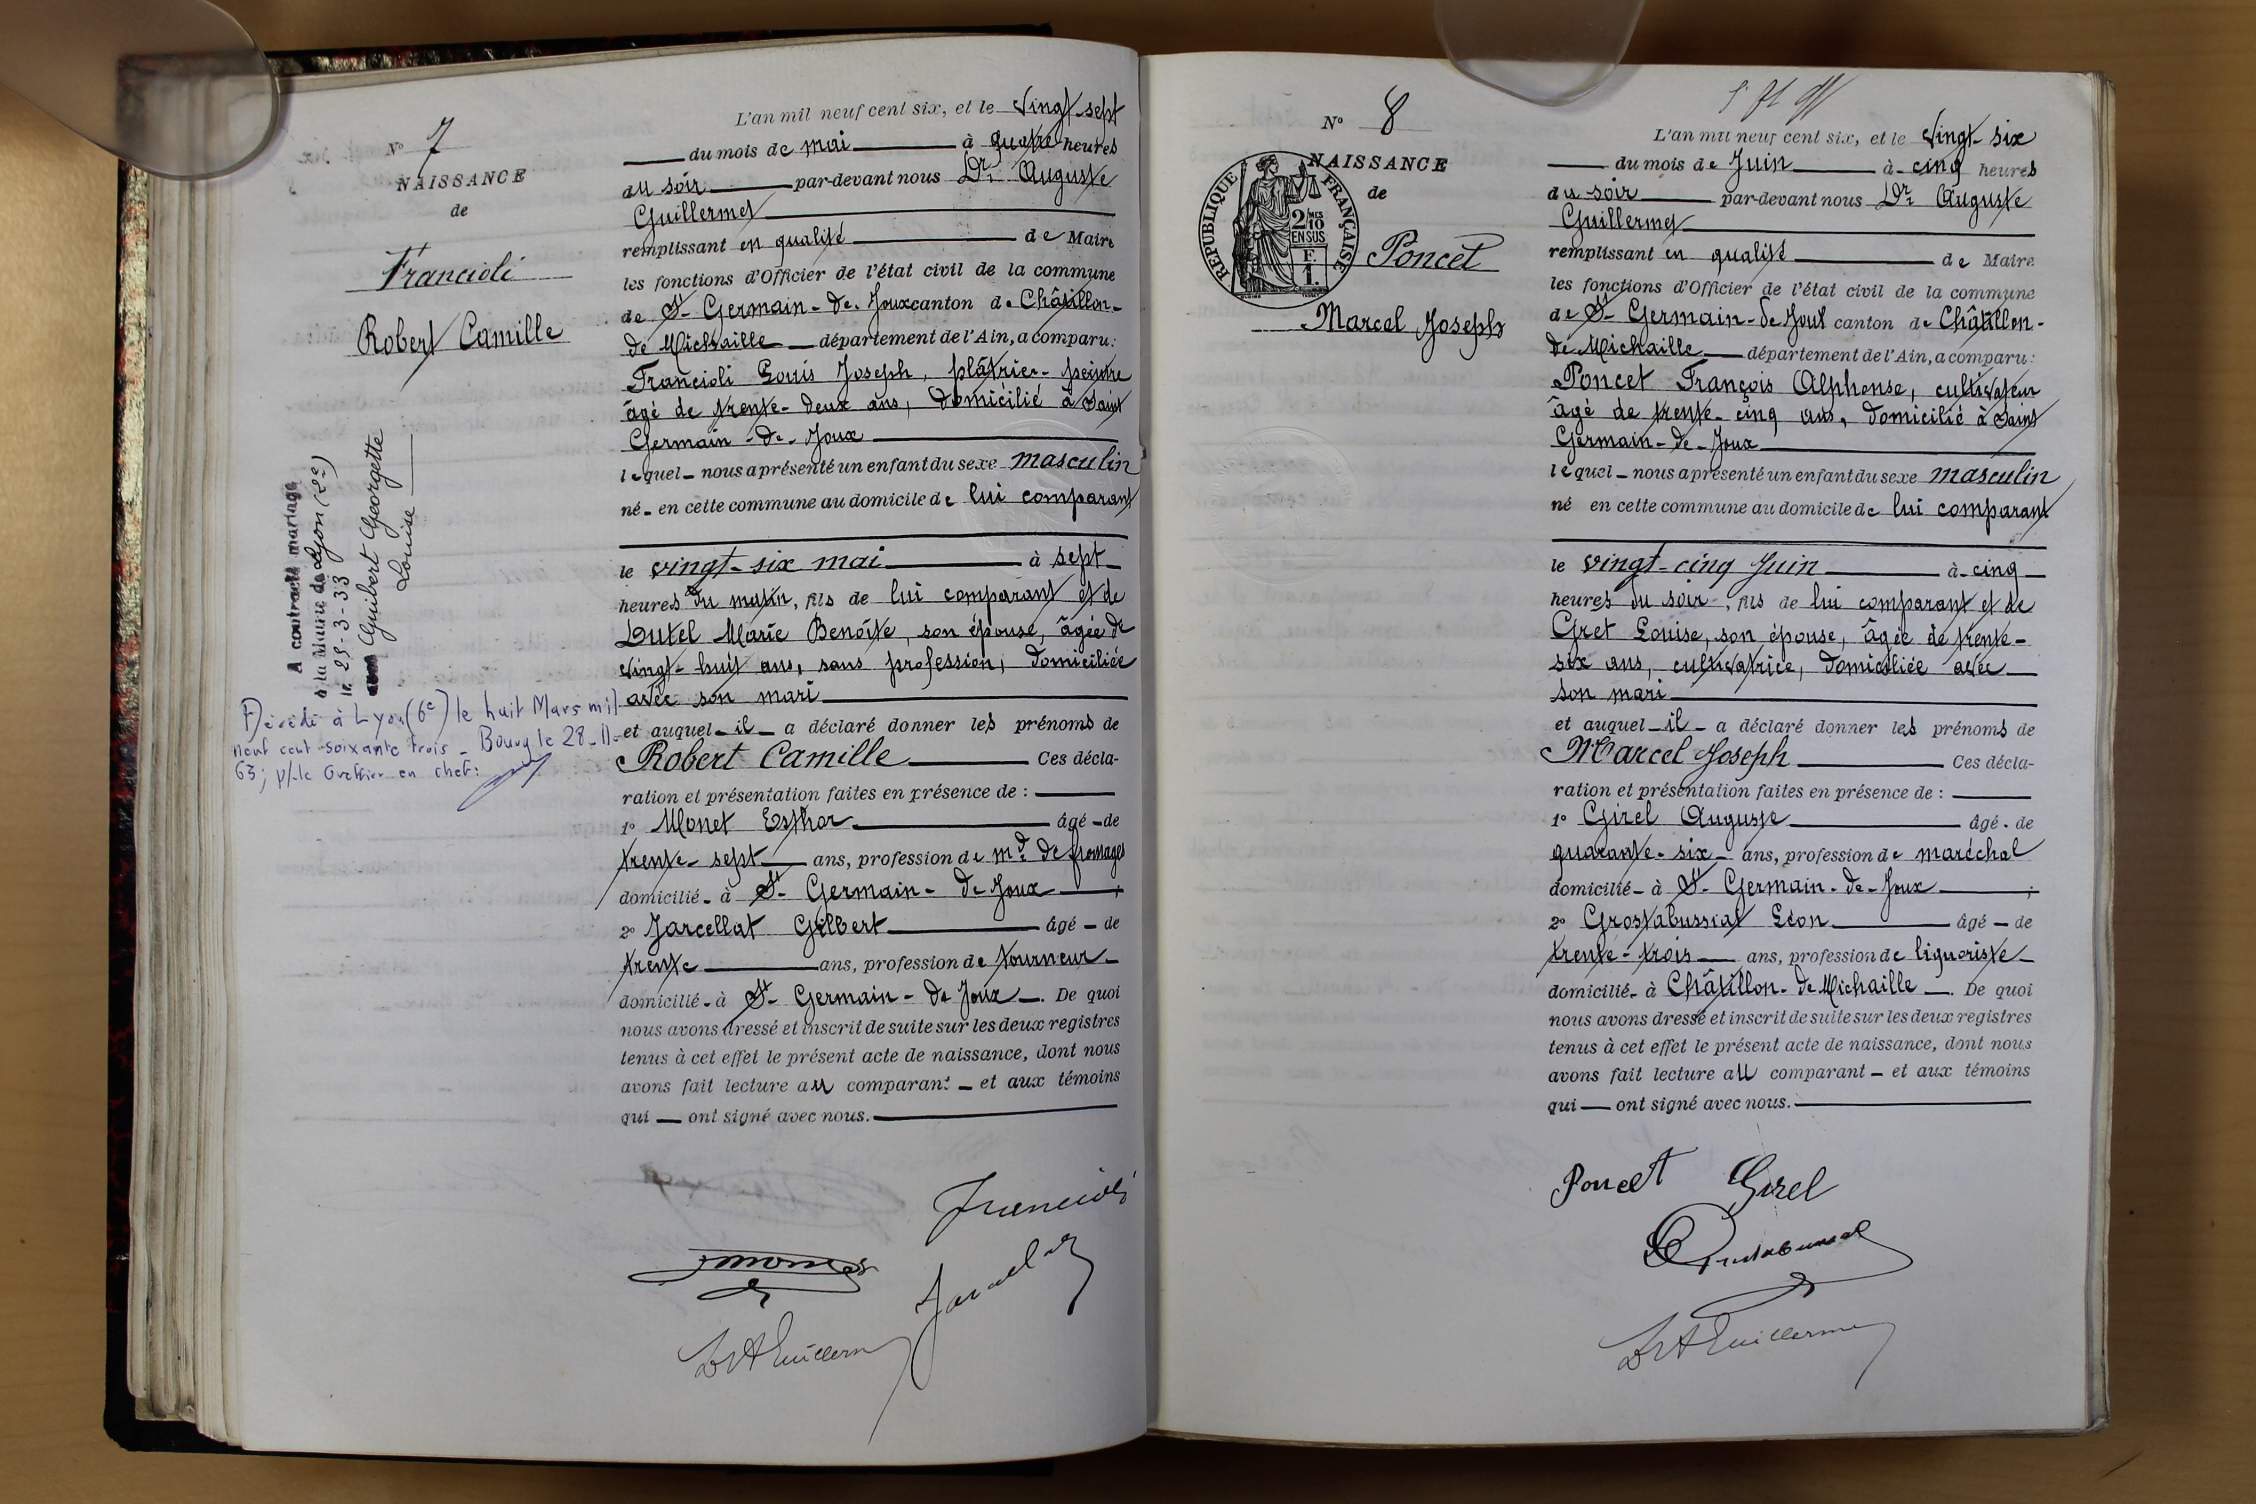 N° 7
NAISSANCE
de
Francioli
Robert Camille
A contracté mariage
à la Mairie de Lyon (2e)
le 25-3-33
avec Guibert Georgette
Louise
Décédé à Lyon (6e) le huit Mars mil
neuf cent soixante trois _ Bourg le 28-11-
63; p/le Greffier en chef:
L'an mil neuf cent six, et le Vingt-sept
du mois de mai à quatre heures
du soir par-devant nous Dr. Auguste
Guillermet
remplissant en qualité de Maire
les fonctions d'Officier de l'état civil de la commune
de St-Germain-de-Joux canton de Châtillon-
de Michaille département de l'Ain, a comparu:
Francioli Louis Joseph, plâtrier-peintre
âgé de trente-deux ans, domicilié à Saint
Germain-de-Joux
lequel nous a présenté un enfant du sexe masculin
né en cette commune au domicile de lui comparant
le vingt-six mai à sept
heures du matin, fils de lui comparant et de
Dutel Marie Benoîte, son épouse, âgée de
vingt-huit ans, sans profession, domiciliée
avec son mari
et auquel il a déclaré donner les prénoms de
Robert Camille Ces décla-
ration et présentation faites en présence de :
1° Monet Esther âgé de
trente-sept ans, profession de md de fromages
domicilié à St-Germain-de-Joux ;
2° Jarcellat Gilbert âgé de
trente ans, profession de tourneur
domicilié à St-Germain-de Joux. De quoi
nous avons dressé et inscrit de suite sur les deux registres
tenus à cet effet le présent acte de naissance, dont nous
avons fait lecture au comparant et aux témoins
qui ont signé avec nous.
Francioli
Monet
Jarcellat
Dr A Guillermet
N° 8
NAISSANCE
de
RÉPUBLIQUE FRANÇAISE
2/10 MES
EN SUS
F.
1.
Poncet
Marcel Joseph
L'an mil neuf cent six, et le Vingt-six
du mois de Juin à cinq heures
du soir par-devant nous Dr. Auguste
Guillermet
remplissant en qualité de Maire
les fonctions d'Officier de l'état civil de la commune
de St-Germain-de Joux canton de Châtillon-
de Michaille département de l'Ain, a comparu:
Poncet François Alphonse, cultivateur
âgé de trente-cinq ans, domicilié à Saint
Germain-de-Joux
lequel nous a présenté un enfant du sexe masculin
né en cette commune au domicile de lui comparant
le vingt-cinq Juin à cinq
heures du soir, fils de lui comparant et de
Gret Louise, son épouse, âgée de trente-
six ans, cultivatrice, domiciliée avec
son mari
et auquel il a déclaré donner les prénoms de
Marcel Joseph Ces décla-
ration et présentation faites en présence de :
1° Girel Auguste âgé de
quarante-six ans, profession de maréchal
domicilié à St-Germain-de-Joux ;
2° Grostabussiat Léon âgé de
trente-trois ans, profession de liquoriste
domicilié à Châtillon-de Michaille. De quoi
nous avons dressé et inscrit de suite sur les deux registres
tenus à cet effet le présent acte de naissance, dont nous
avons fait lecture au comparant et aux témoins
qui ont signé avec nous.
Poncet Girel
Grostabussiat
Dr A Guillermet